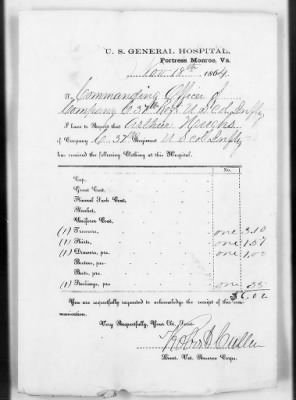 U. S. GENERAL HOSPITAL,
Fortress Monroe, Va.
Nov 18th 1864.
To Commanding Officer of
Company C 37th Regt U S Col Infty
I have to Report that Arthur
of Company C 37th Regiment U S Col Infty
has received the following Clothing at this Hospital.
No.
Cap,
Great Coat,
Flannel Sack Coat,
Blanket,
Uniform Coat,
(1) Trousers, one 3.10
(1) Shirts, one 1.57
(1) Drawers, prs. one 1.00
Bootees, prs.
Boots, prs.
(1) Stockings, prs. one 35
$6.02
You are respectfully requested to acknowledge the receipt of this communication.
Very Respectfully, Your Ob. Serv.
Cullen
Lieut. Vet. Reserve Corps.